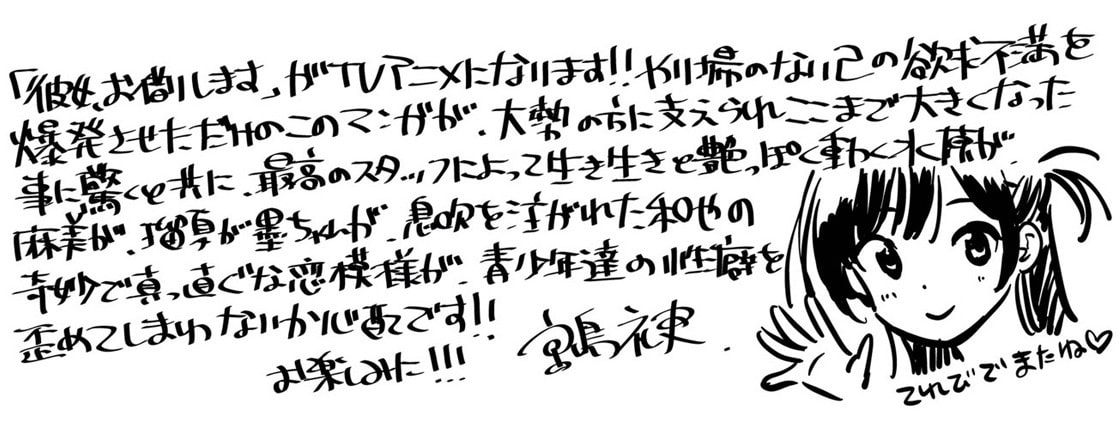 「彼女、お借りします」がTVアニメになります!! やり場のない己の欲求不満を
爆発させただけのこのマンガが、大勢の方に支えられここまで大きくなった
事に驚くと共に、最高のスタッフによって生き生きと艶っぽく動く水原が、
麻美が、瑠夏が墨ちゃんが、息吹を注がれた和也の
奇妙で真っ直ぐな恋模様が、青少年達の性癖を
歪めてしまわないか心配です!!
お楽しみに!!!
宮島礼吏.
てれびでまたね♡